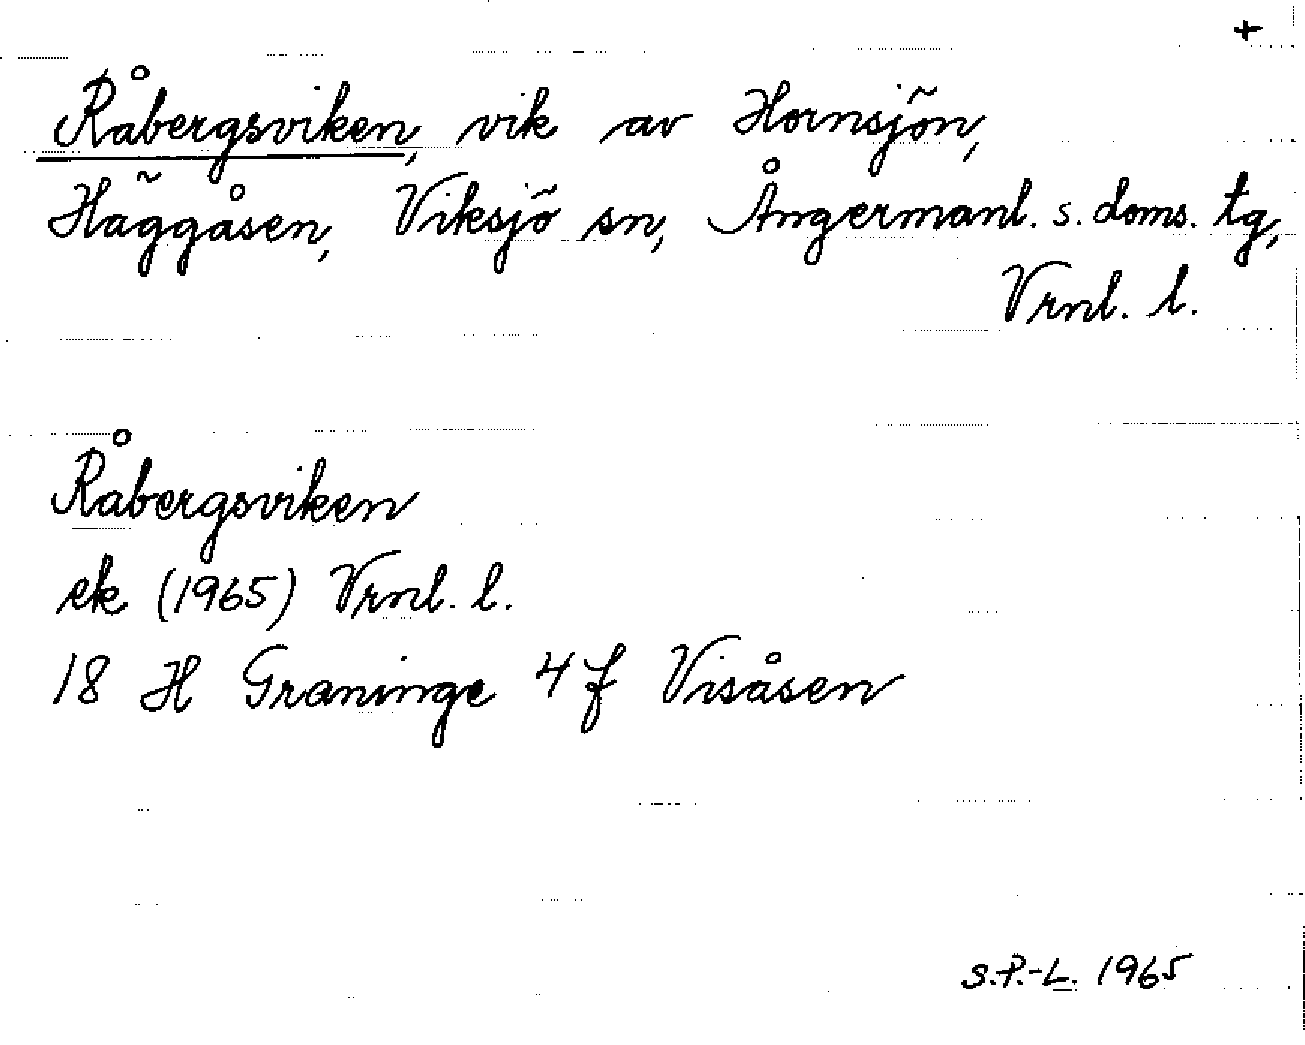 +
Råbergsviken, vik av Hornsjön,
Häggåsen, Viksjö sn, Ångermanl. s. doms. tg,
Vrnl. l.
Råbergsviken
ek (1965) Vrnl. l.
18 H Graninge 4 f Visåsen
S.P.-L. 1965